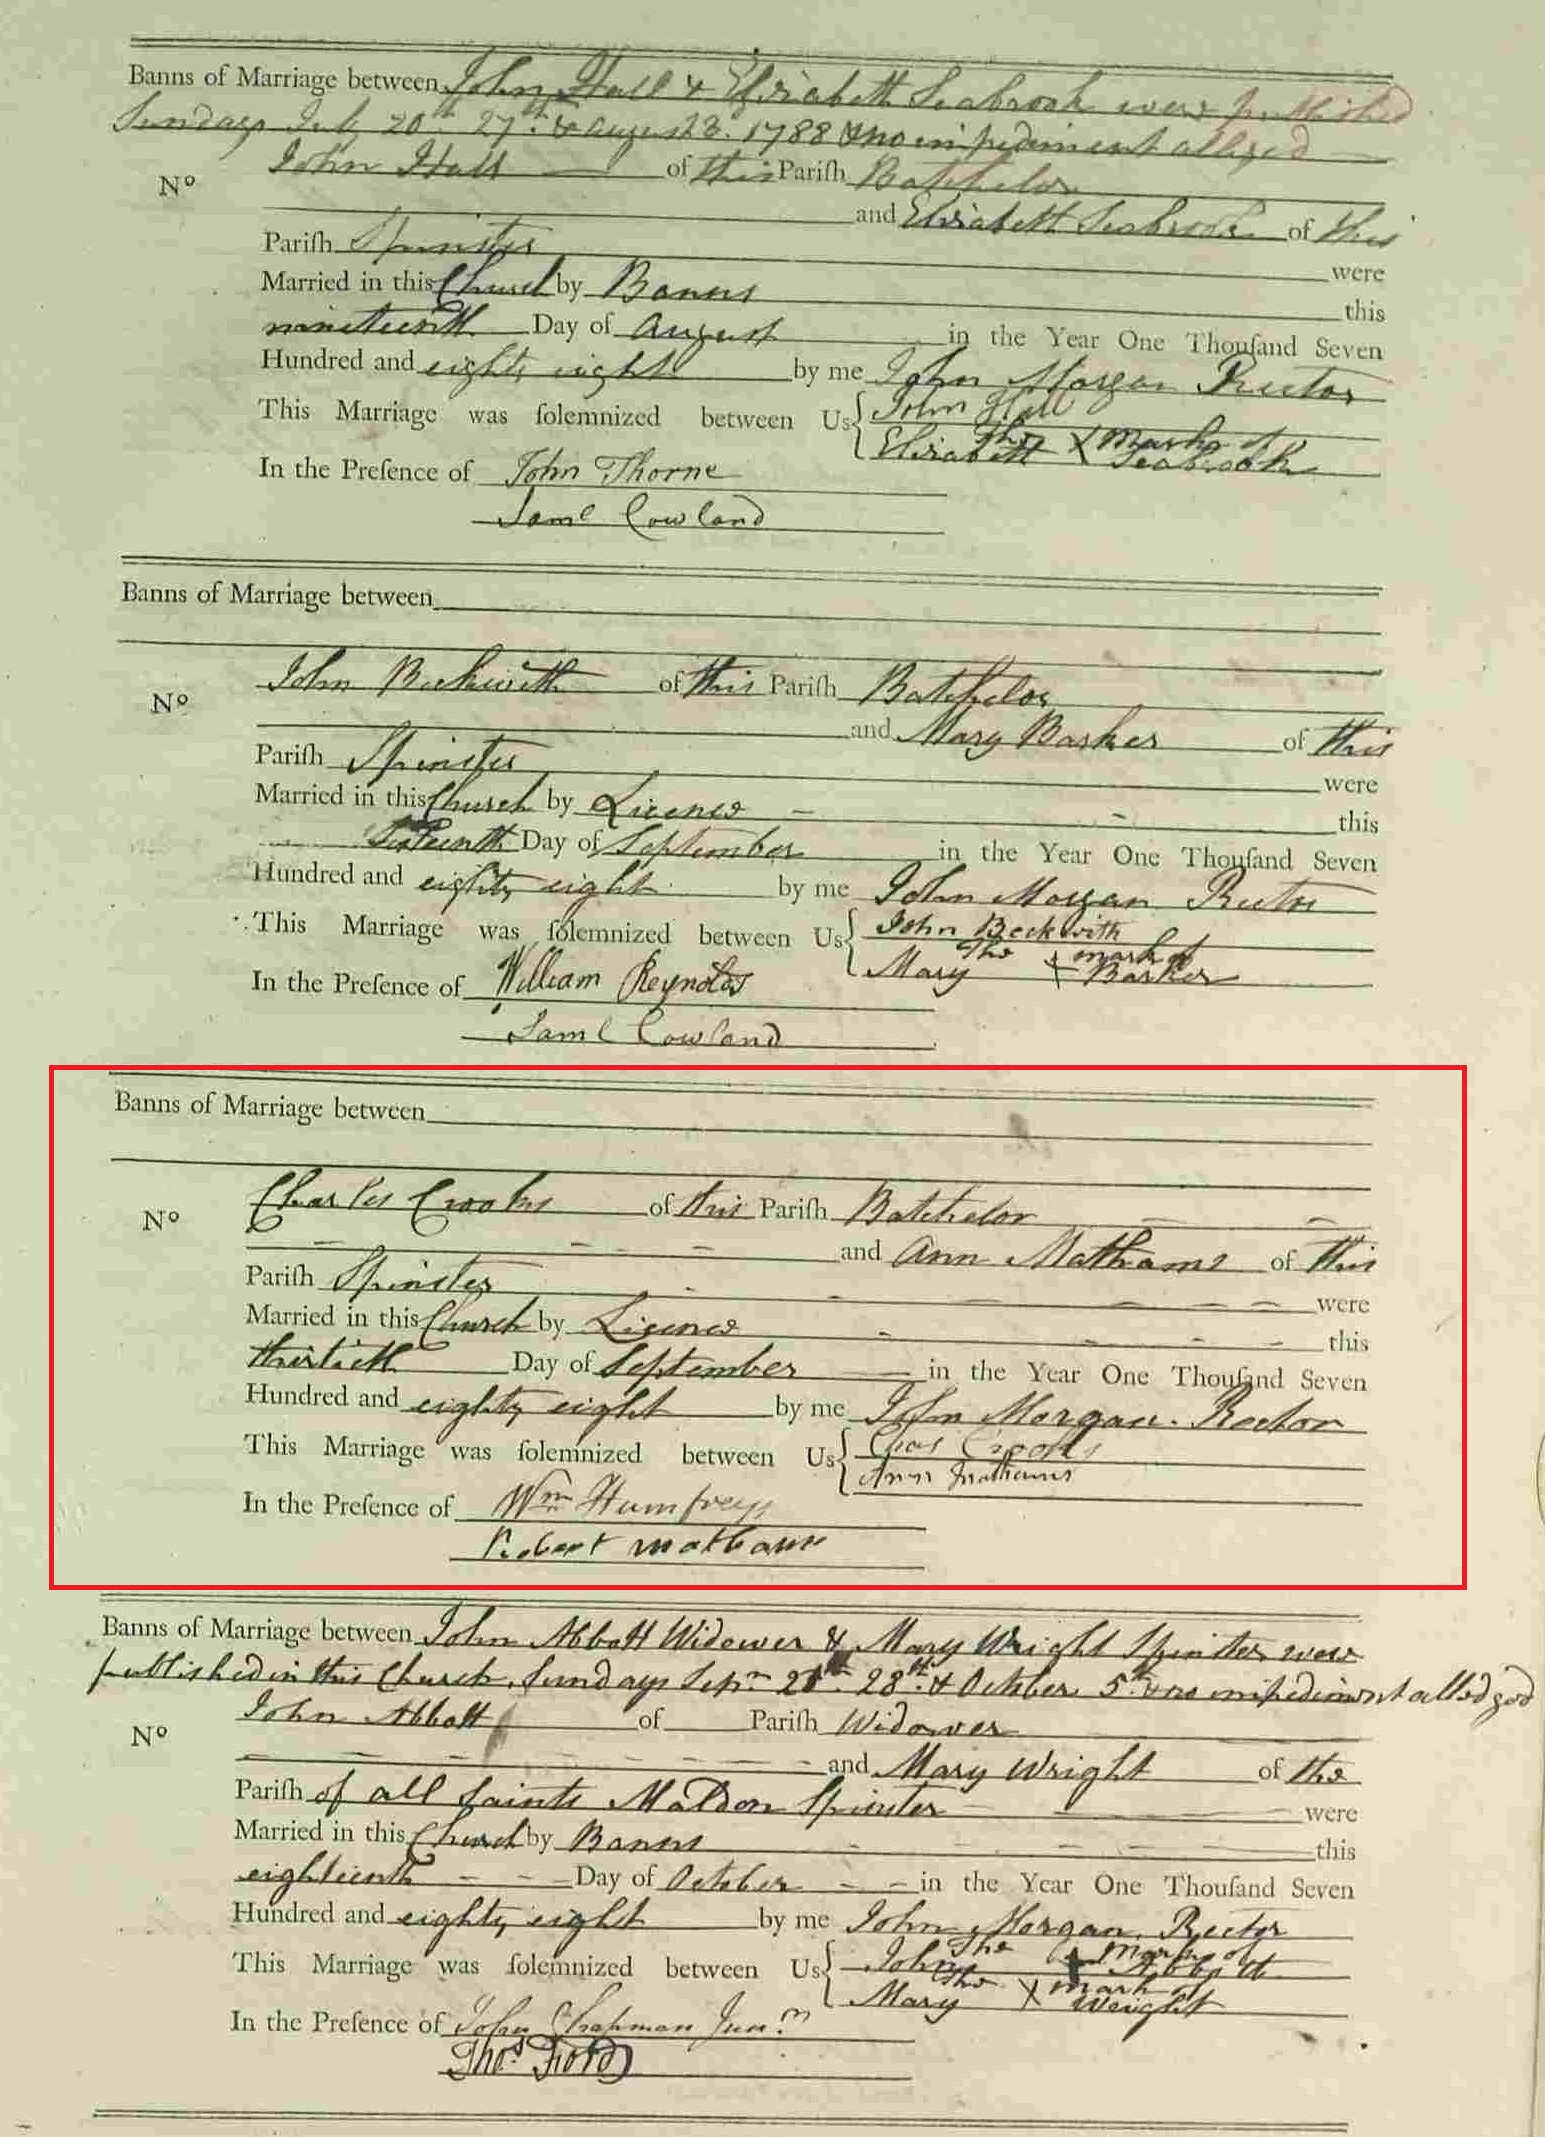 Banns of Marriage between John Hall & Elisabeth Seabrook were published
Sundays July 20th 27th & August 3. 1788 & no impediment alleged
No John Hall of this Parish Batchelor
and Elisabeth Seabrook of this
Parish Spinster were
Married in this Church by Banns this
nineteenth Day of August in the Year One Thousand Seven
Hundred and eighty eight by me John Morgan Rector
This Marriage was solemnized between Us John Hall
Elisabeth The X Mark of Seabrook
In the Presence of John Thorne
Saml Cowland
Banns of Marriage between
No John Beckwith of this Parish Batchelor
and Mary Barker of this
Parish Spinster were
Married in this Church by Licence this
Sixteenth Day of September in the Year One Thousand Seven
Hundred and eighty eight by me John Morgan Rector
This Marriage was solemnized between Us John Beckwith
Mary The X mark of Barker
In the Presence of William Reynolds
Saml Cowland
Banns of Marriage between
No Charles Crooks of this Parish Batchelor
and Ann Mathams of this
Parish Spinster were
Married in this Church by Licence this
thirtieth Day of September in the Year One Thousand Seven
Hundred and eighty eight by me John Morgan. Rector
This Marriage was solemnized between Us Chas Crooks
Ann Mathams
In the Presence of Wm Humfreys
Robert Mathams
Banns of Marriage between John Abbott Widower & Mary Wright Spinster were
published in this Church, Sundays Sepr 28th & October 5th & no impediment alledged
No John Abbott of Parish Widower
and Mary Wright of the
Parish of all Saints Maldon Spinster were
Married in this Church by Banns this
eighteenth Day of October in the Year One Thousand Seven
Hundred and eighty eight by me John Morgan, Rector
This Marriage was solemnized between Us John The X Mark of Abbott
Mary The X mark of Wright
In the Presence of John Chapman Junr
Thos Ford